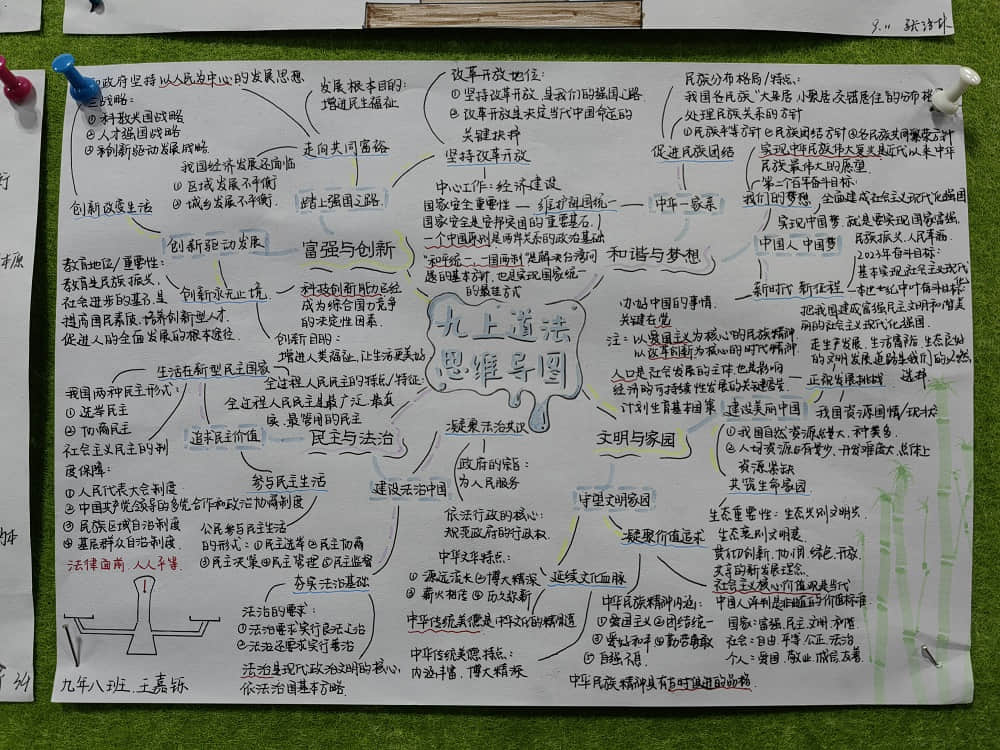 政府坚持以人民为中心的发展思想
发展根本目的:
增进民生福祉
战略:
①科教兴国战略
②人才强国战略
③创新驱动发展战略
走向共同富裕
我国经济发展还面临
①区域发展不平衡
②城乡发展不平衡.
踏上强国之路
改革开放地位:
①坚持改革开放,是我们的强国之路.
②改革开放是决定当代中国命运的
关键抉择
坚持改革开放
中心工作:经济建设
创新改变生活
创新驱动发展
富强与创新
教育地位/重要性:
教育是民族振兴、
社会进步的基石,是
提高国民素质,培养创新型人才,
促进人的全面发展的根本途径
创新永无止境
科技创新能力已经
成为综合国力竞争
的决定性因素.
创新目的:
增进人类福祉,让生活更美好
民族分布格局/特点:
我国各民族“大杂居,小聚居,交错居住的分布格
处理民族关系的方针
①民族平等方针 ②民族团结方针 ③各民族共同繁荣方针
促进民族团结
国家安全重要性
维护祖国统一
国家安全是安邦定国的重要基石.
一个中国原则是两岸关系的政治基础
“和平统一、一国两制”是解决台湾问
题的基本方针,也是实现国家统一
的最佳方式
中华一家亲
和谐与梦想
实现中华民族伟大复兴是近代以来中华
民族最伟大的愿望.
第二个百年奋斗目标:
我们的梦想
全面建成社会主义现代化强国
中国人 中国梦
实现中国梦,就是要实现国家富强、
民族振兴、人民幸福.
2035年奋斗目标:
基本实现社会主义现代化
新时代 新征程
本世纪中叶奋斗目标:
把我国建成富强民主文明和谐美
丽的社会主义现代化强国.
办好中国的事情,
关键在党
注:以爱国主义为核心的民族精神
以改革创新为核心的时代精神
九上道法
思维导图
人口是社会发展的主体,也是影响
经济的可持续性发展的关键因素
计划生育基本国策
走生产发展、生活富裕、生态良好
的文明发展道路是我们的必然
选择
正视发展挑战
建设美丽中国
文明与家园
我国资源国情/现状:
①我国自然资源总量大,种类多.
②人均资源占有量少,开发难度大,总体上
资源紧缺
共筑生命家园
生态重要性:生态兴则文明兴,
生态衰则文明衰
贯彻创新、协调、绿色、开放、
共享的新发展理念.
生活在新型民主国家
我国两种民主形式:
①选举民主
②协商民主
全过程人民民主的特点/特征:
全过程人民民主是最广泛、最真
实、最管用的民主
追求民主价值
民主与法治
社会主义民主的制
度保障:
①人民代表大会制度
②中国共产党领导的多党合作和政治协商制度
③民族区域自治制度
④基层群众自治制度.
参与民主生活
公民参与民主生活
的形式:①民主选举 ②民主协商
③民主决策 ④民主管理 ⑤民主监督
建设法治中国
凝聚法治共识
政府的宗旨:
为人民服务
依法行政的核心:
规范政府的行政权
夯实法治基础
法治的要求:
①法治要求实行良法之治
②法治还要求实行善治
法治是现代政治文明的核心,
依法治国基本方略.
法律面前,人人平等
守望文明家园
延续文化血脉
中华文华特点:
①源远流长 ②博大精深
③薪火相传 ④历久弥新
中华传统美德是中华文化的精髓
中华传统美德特点:
内涵丰富、博大精深
凝聚价值追求
中华民族精神内涵:
①爱国主义 ②团结统一
③爱好和平 ④勤劳勇敢
⑤自强不息
中华民族精神具有与时俱进的品格.
社会主义核心价值观是当代
中国人评判是非曲直的价值标准
国家:富强、民主、文明、和谐
社会:自由、平等、公正、法治
个人:爱国、敬业、诚信、友善.
九年八班 王嘉铄
9.11